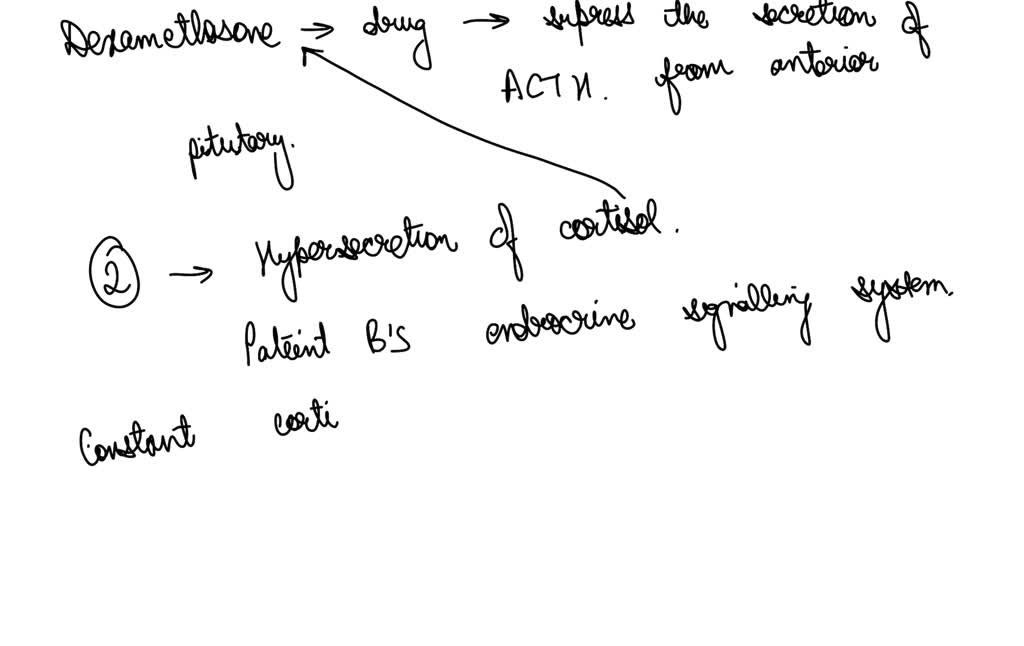 Dexamethasone → drug → supress the secretion of
ACTH. from anterior
pitutary.
② → Hypersecretion of cortisol.
Patient B'S endrocrine signalling system.
Constant corti